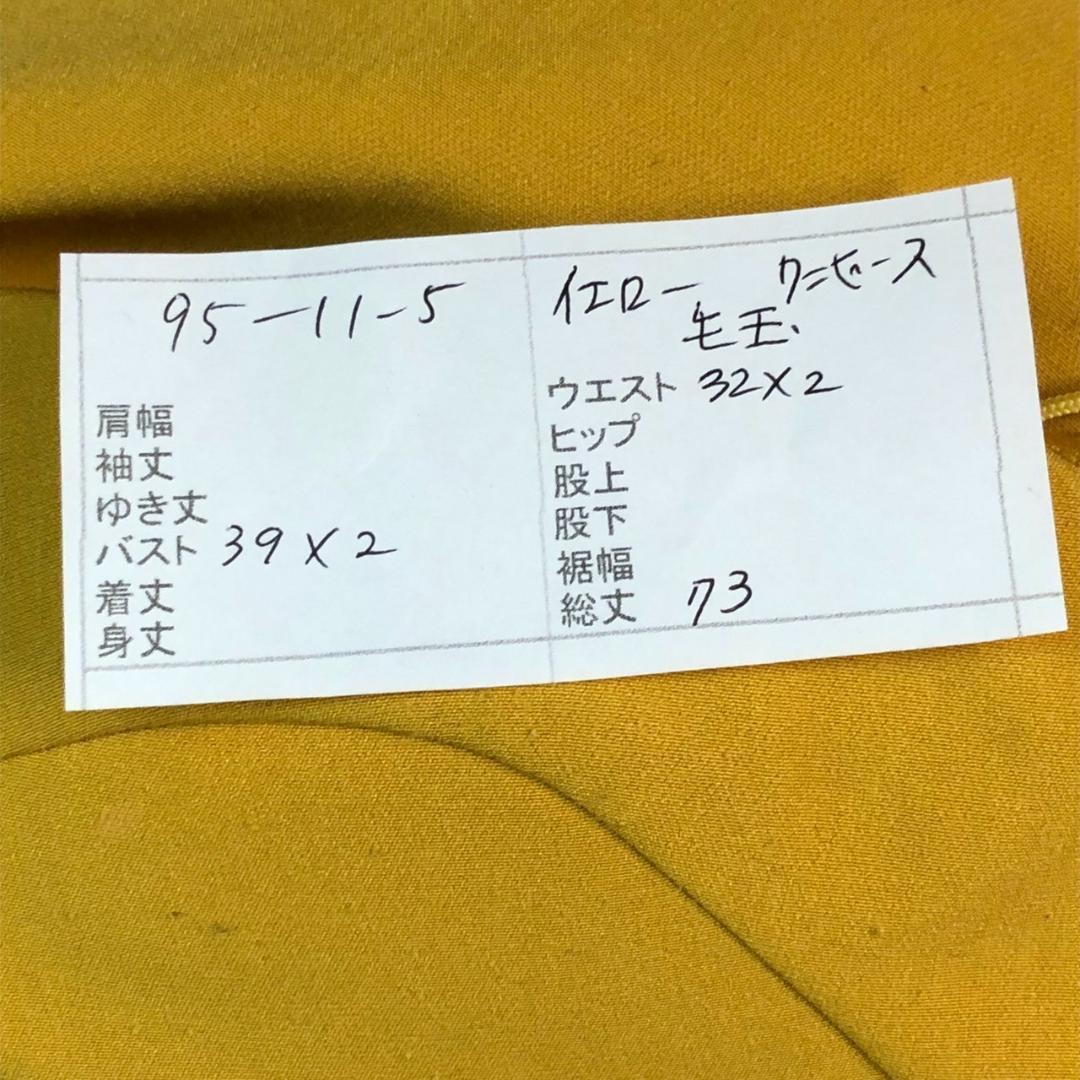 95-11-5
肩幅
袖丈
ゆき丈
バスト 39×2
着丈
身丈
イエロー ワンピース
毛玉、
ウエスト 32×2
ヒップ
股上
股下
裾幅
総丈 73